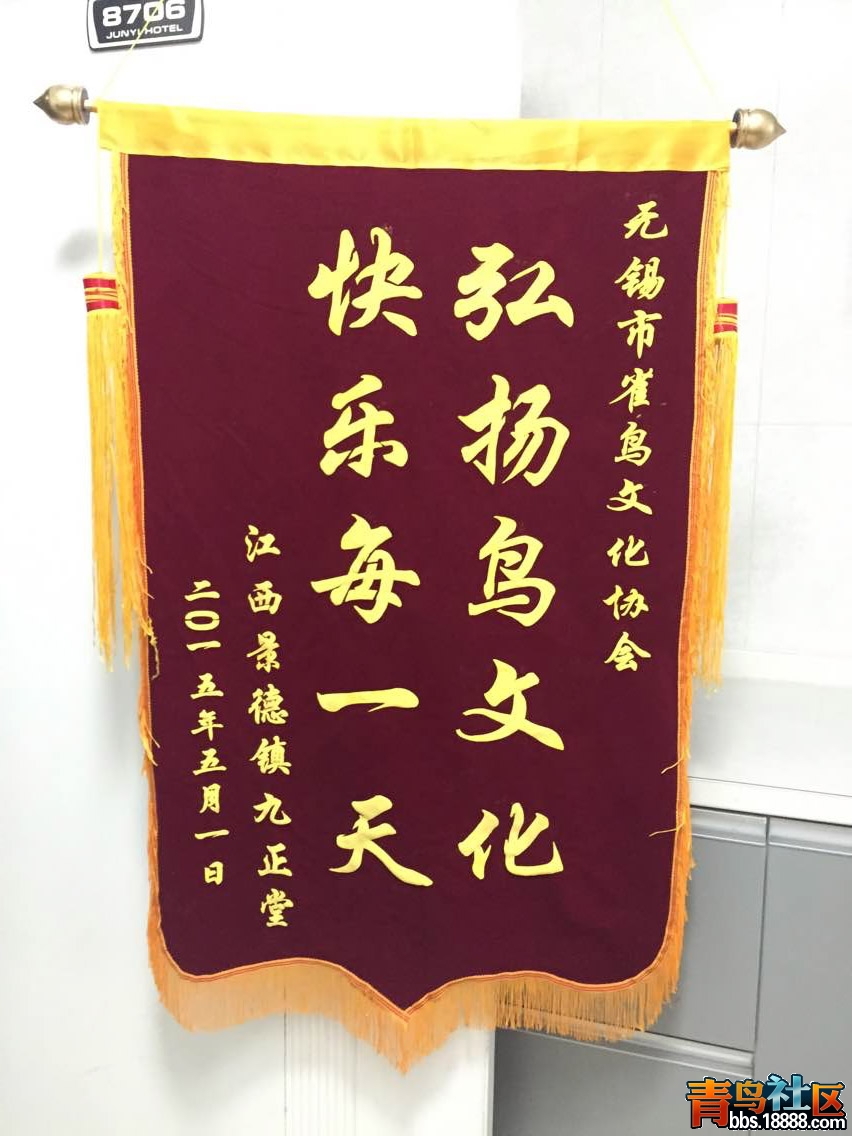 8706
JUNYI HOTEL
无锡市雀鸟文化协会
弘扬鸟文化
快乐每一天
江西景德镇九正堂
二〇一五年五月一日
青鸟社区
bbs.18888.com